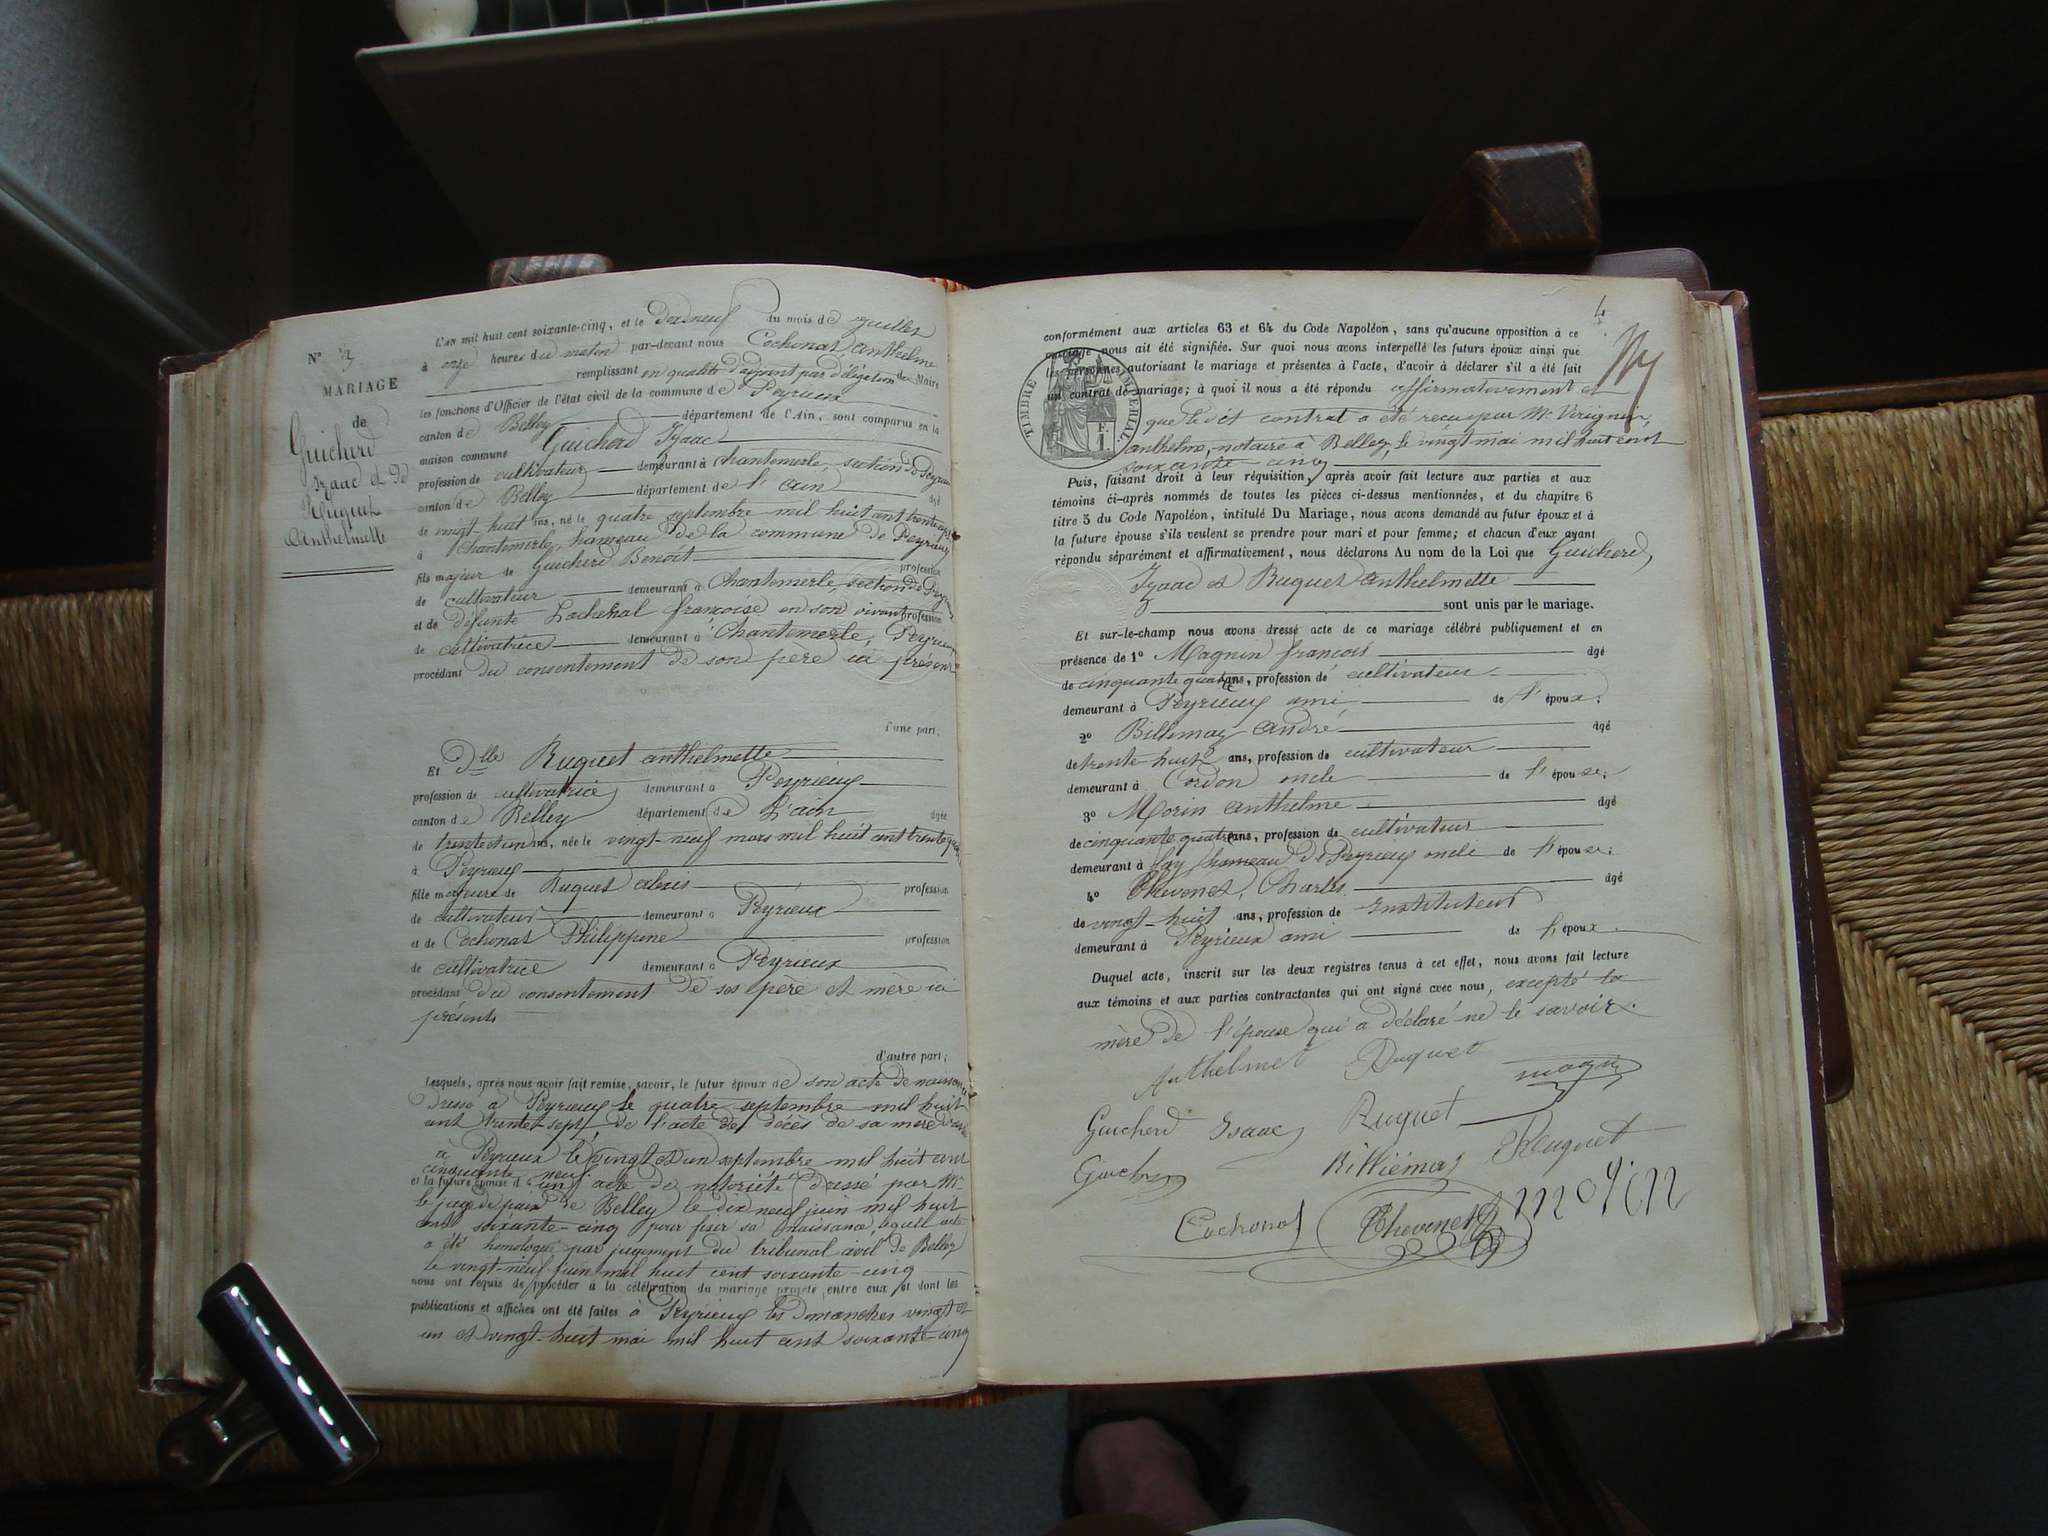 N° 3
MARIAGE
de
Guicherd
Izaac et de
Ruguet
Anthelmette
L'AN mil huit cent soixante-cinq, et le dix neuf du mois de juillet
à onze heures du matin par-devant nous Cochonat Anthelme
remplissant en qualité d'adjoint par délégation du Maire
les fonctions d'Officier de l'état civil de la commune de Peyrieux
canton de Belley département de l'Ain, sont comparus en la
maison commune Guicherd Izaac
profession de cultivateur demeurant à Chantemerle, section de Peyrieux
canton de Belley département de l'Ain âgé
de vingt huit ans, né le quatre septembre mil huit cent trente sept
à Chantemerle, hameau de la commune de Peyrieux
fils majeur de Guicherd Benoit profession
de cultivateur demeurant à Chantemerle, section de Peyrieux
et de défunte Lachenal françoise en son vivant profession
de cultivatrice demeurant à Chantemerle, Peyrieux
procédant du consentement de son père ici présent
l'une part;
Et Dlle Ruguet anthelmette
profession de cultivatrice demeurant à Peyrieux
canton de Belley département de L'ain âgée
de trente et un ans, née le vingt-neuf mars mil huit cent trente quatre
à Peyrieux
fille majeure de Ruguet alexis profession
de cultivateur demeurant à Peyrieux
et de Cochonat Philippine profession
de cultivatrice demeurant à Peyrieux
procédant du consentement de ses père et mère ici
présents
d'autre part;
Lesquels, après nous avoir fait remise, savoir, le futur époux de son acte de naissance
dressé à Peyrieux le quatre septembre mil huit
cent trente-sept, de l'acte de décès de sa mère dressé
à Peyrieux le vingt et un septembre mil huit cent
cinquante neuf
et la future épouse d'un acte de notoriété dressé par Mr
le juge de paix de Belley le dix neuf juin mil huit
cent soixante-cinq pour fixer sa naissance, lequel acte
a été homologué par jugement du tribunal civil de Belley
le vingt-neuf juin mil huit cent soixante-cinq
nous ont requis de procéder à la célébration du mariage projeté entre eux et dont les
publications et affiches ont été faites à Peyrieux les dimanches vingt et
un et vingt-huit mai mil huit cent soixante-cinq
4
conformément aux articles 63 et 64 du Code Napoléon, sans qu'aucune opposition à ce
mariage nous ait été signifiée. Sur quoi nous avons interpellé les futurs époux ainsi que
les personnes autorisant le mariage et présentes à l'acte, d'avoir à déclarer s'il a été fait
un contrat de mariage; à quoi il nous a été répondu affirmativement et
TIMBRE IMPÉRIAL.
F. 1
que le dit contrat a été reçu par Me
anthelme, notaire à Belley, le vingt mai mil huit cent
soixante-cinq
Puis, faisant droit à leur réquisition, après avoir fait lecture aux parties et aux
témoins ci-après nommés de toutes les pièces ci-dessus mentionnées, et du chapitre 6
titre 5 du Code Napoléon, intitulé Du Mariage, nous avons demandé au futur époux et à
la future épouse s'ils veulent se prendre pour mari et pour femme; et chacun d'eux ayant
répondu séparément et affirmativement, nous déclarons Au nom de la Loi que Guicherd
Izaac et Ruguet anthelmette
sont unis par le mariage.
Et sur-le-champ nous avons dressé acte de ce mariage célébré publiquement et en
présence de 1° Magnin françois âgé
de cinquante quatre ans, profession de cultivateur
demeurant à Peyrieux ami de l'époux;
2° Billiemaz André âgé
de trente-huit ans, profession de cultivateur
demeurant à Cordon oncle de l'épouse;
3° Morin anthelme âgé
de cinquante quatre ans, profession de cultivateur
demeurant à Fay hameau de Peyrieux oncle de l'épouse;
4° Thevenet Charles âgé
de vingt-huit ans, profession de Instituteur
demeurant à Peyrieux ami de l'époux.
Duquel acte, inscrit sur les deux registres tenus à cet effet, nous avons fait lecture
aux témoins et aux parties contractantes qui ont signé avec nous, excepté la
mère de l'épouse qui a déclaré ne le savoir.
Anthelmet Ruguet magnin
Guicherd Isaac Ruguet
Guicherd Billiémaz Ruguet
Cochonat Thevenet morin